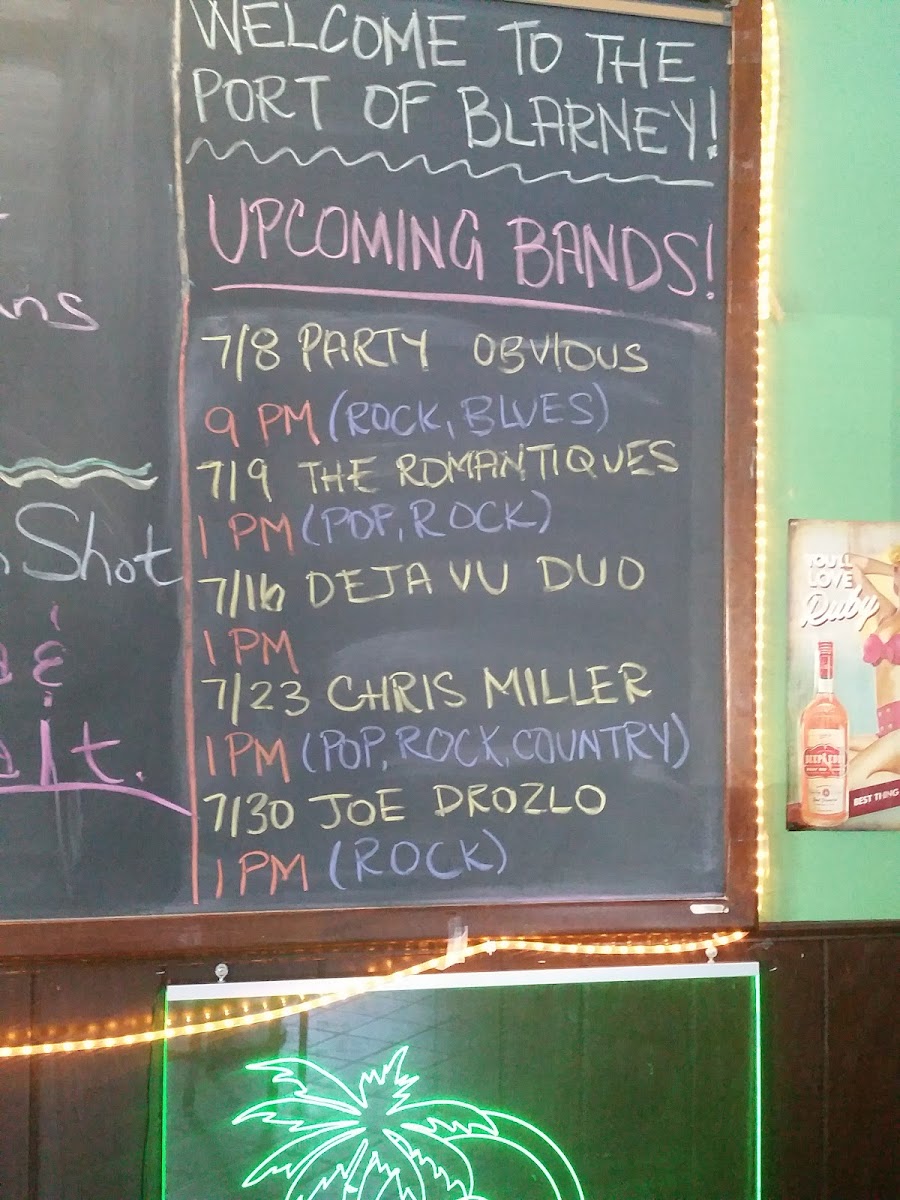 WELCOME TO THE
PORT OF BLARNEY!
UPCOMING BANDS!
7/8 PARTY OBVIOUS
9 PM (ROCK, BLUES)
7/9 THE ROMANTIQUES
1 PM (POP, ROCK)
7/16 DEJA VU DUO
1 PM
7/23 CHRIS MILLER
1 PM (POP, ROCK, COUNTRY)
7/30 JOE DROZLO
1 PM (ROCK)
Shot
&
YOU'LL
LOVE
Ruby
DEEP EDDY
BEST THING